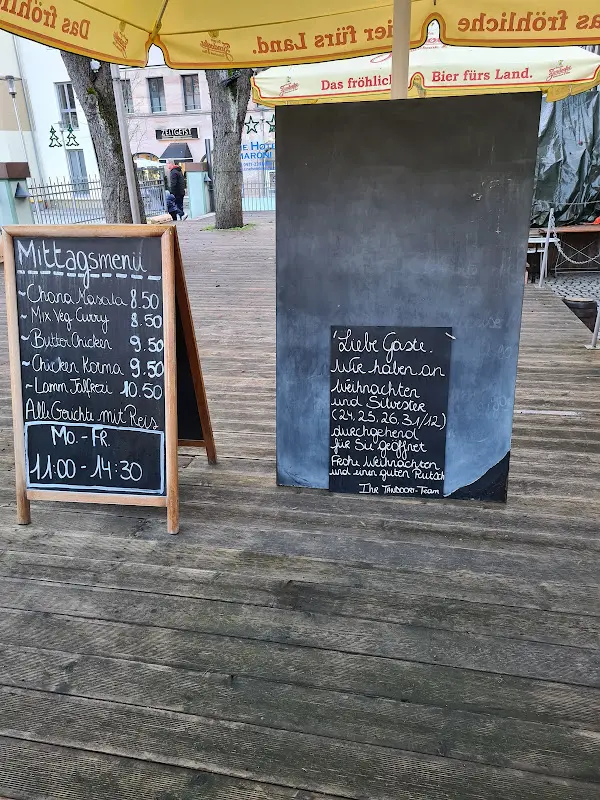 Das fröhli
Bier fürs Land.
as fröhliche
Das fröhlich
Bier fürs Land.
ZEITGEIST
Mittagsmenü
~ Chana Masala 8.50
~ Mix Veg. Curry 8.50
~ Butter Chicken 9.50
~ Chicken Korma 9.50
~ Lamm Jalfrezi 10.50
Alle Gerichte mit Reis
Mo.-Fr.
11:00 - 14:30
Liebe Gäste.
Wir haben an
Weihnachten
und Silvester
(24, 25, 26, 31/12)
durchgehend
für Sie geöffnet
Frohe Weihnachten
und einen guten Rutsch
Ihr TANDOORI-Team